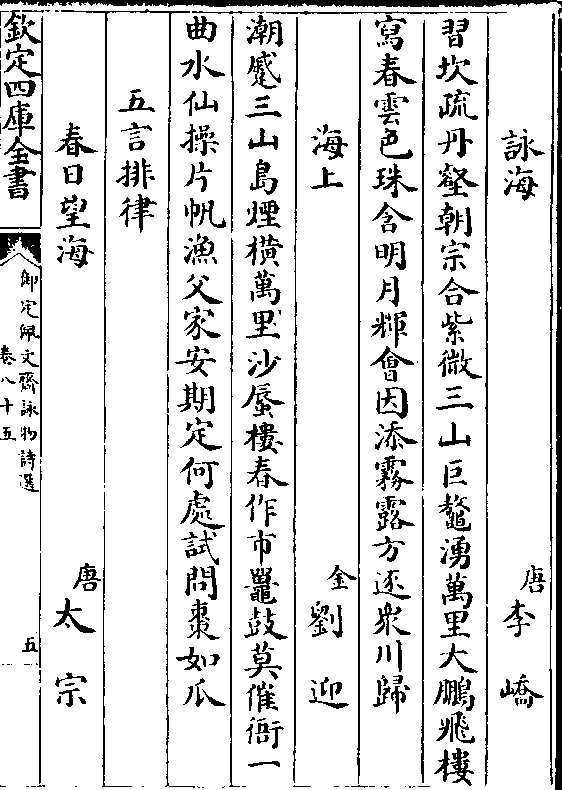 詠海　唐李嶠
習坎疏丹壑朝宗合紫微三山巨鼇湧萬里大鵬飛樓
寫春雲色珠含明月輝會因添霧露方逐衆川歸
海上　金劉迎
潮蹙三山島煙橫萬里沙蜃樓春作市鼉鼓莫催衙一
曲水仙操片帆漁父家安期定何處試問棗如瓜
五言排律
春日望海　唐太宗
欽定四庫全書
御定佩文齋詠物詩選
卷八十五
五